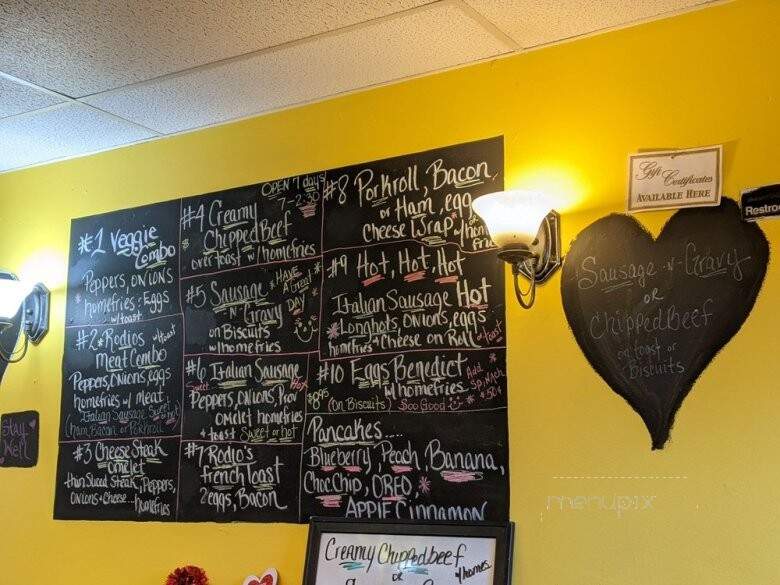 #1 Veggie
Combo
Peppers, onions
homefries + Eggs
w/toast
#2 * Rodios w/toast
Meat Combo
Peppers, onions, eggs
homefries w/ meat
(Italian Sausage Sweet or hot)
(Ham Bacon or Porkroll)
#3 Cheese Steak
omelet
thin sliced steak, Peppers,
onions + cheese
homefries
OPEN 7 days
7-2:30
#4 Creamy
Chipped Beef
over toast w/ homefries
#5 Sausage
-N-
Gravy
on Biscuits
w/homefries
* HAVE *
A Great
DAY
#6 Italian Sausage
Sweet Hot
Peppers, Onions, Prov
omelet homefries
+ toast Sweet or hot
#7 Rodio's
french Toast
2 eggs, Bacon
#8 Porkroll, Bacon
or Ham, egg
Cheese Wrap w/home
fries
#9 Hot, Hot, Hot
Italian Sausage Hot
*Longhots, onions, eggs
homefries + Cheese on Roll or toast
#10 Eggs Benedict
w/ homefries
$8.95 (on Biscuits) Soo Good
Add
Spinach
.50¢
Pancakes....
Blueberry, Peach, Banana,
Choc Chip, OREO, *
APPle Cinnamon
Gift
Certificates
AVAILABLE HERE
Restro
Sausage -N- Gravy
or
Chipped Beef
on toast or
Biscuits
Stay
Well
Creamy Chipped beef
or
w/homes
menupix